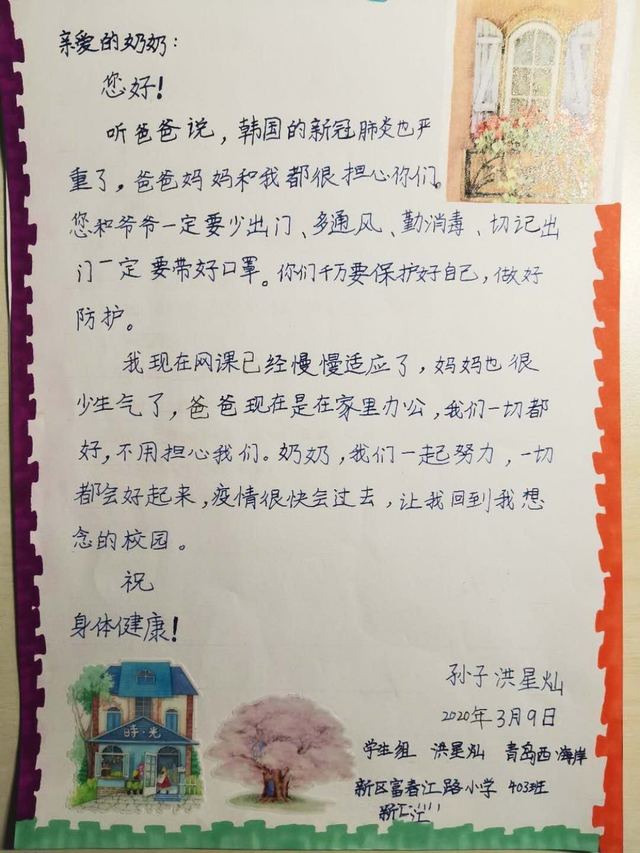 亲爱的奶奶：
您好！
听爸爸说，韩国的新冠肺炎也严
重了，爸爸妈妈和我都很担心你们。
您和爷爷一定要少出门、多通风、勤消毒、切记出
门一定要带好口罩。你们千万要保护好自己，做好
防护。
我现在网课已经慢慢适应了，妈妈也很
少生气了，爸爸现在是在家里办公，我们一切都
好，不用担心我们。奶奶，我们一起努力，一切
都会好起来，疫情很快会过去，让我回到我想
念的校园。
祝
身体健康！
孙子 洪星灿
2020年3月9日
時·光
学生组 洪星灿 青岛西海岸
新区富春江路小学 403班